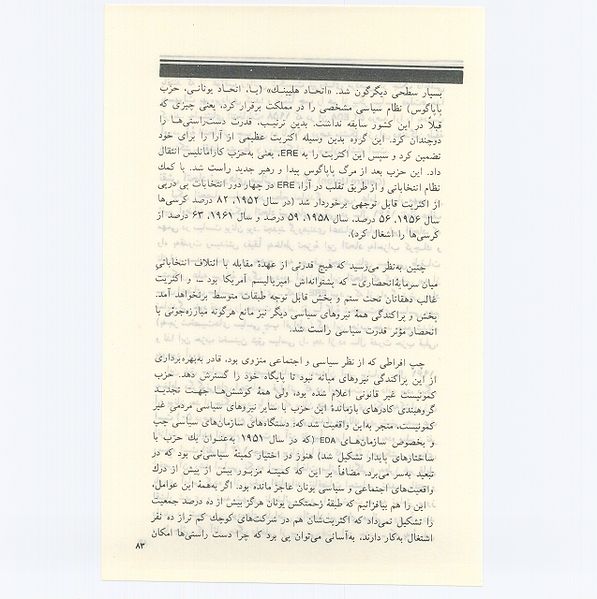 بسیار سطحی دیگرگون شد. «اتحاد هلینیك» (یا، اتحاد یونانی، حزب
پاپاگوس) نظام سیاسی مشخصی را در مملکت برقرار کرد، یعنی چیزی که
قبلاً در این کشور سابقه نداشت. بدین ترتیب، قدرت دست‌راستی‌ها را
دوچندان کرد. این گروه بدین وسیله اکثریت عظیمی از آرا را برای خود
تضمین کرد و سپس این اکثریت را به ERE، یعنی به‌حزب کارامانلیس انتقال
داد. این حزب بعد از مرگ پاپاگوس پیدا و رهبر جدید راست شد. با کمك
نظام انتخاباتی و از طریق تقلب در آراء، ERE در چهار دور انتخابات پی درپی
از اکثریت قابل توجهی برخوردار شد (در سال ۱۹۵۲، ۸۲ درصد کرسی‌ها
سال ۱۹۵۶، ۵۶ درصد، سال ۱۹۵۸، ۵۹ درصد و سال ۱۹۶۱، ۶۳ درصد از
کرسی‌ها را اشغال کرد).
چنین به‌نظر می‌رسید که هیچ قدرتی از عهدهٔ مقابله با ائتلاف انتخاباتی
میان سرمایهٔ‌انحصاری_ که پشتوانه‌اش امپریالیسم آمریکا بود _ و اکثریت
غالب دهقانان تحت ستم و بخش قابل توجه طبقات متوسط برنخواهد آمد.
پخش و پراکندگی همهٔ نیروهای سیاسی دیگر نیز مانع هرگونه مبارزه‌جوئی با
انحصار مؤثر قدرت سیاسی راست شد.
چپ افراطی که از نظر سیاسی و اجتماعی منزوی بود، قادر به‌بهره‌برداری
از این پراکندگی نیروهای میانه نبود تا پایگاه خود را گسترش دهد. حزب
کمونیست غیر قانونی اعلام شده بود، ولی همهٔ کوشش‌ها جهت تجدید
گروهبندی کادرهای بازماندهٔ این حزب با سایر نیروهای سیاسی مردمی غیر
کمونیست، منجر به‌این واقعیت شد که: دستگاه‌های سازمان‌های سیاسی چپ
و بخصوص سازمان‌های EDA (که در سال ۱۹۵۱ به‌عنوان یك حزب با
ساختارهای پایدار تشکیل شد) هنوز در اختیار کمیتهٔ سیاسی‌ئی بود که در
تبعید به‌سر می‌برد. مضافاً بر این که کمیته مزبور بیش از پیش از درك
واقعیت‌های اجتماعی و سیاسی یونان عاجز مانده بود. اگر به‌همهٔ این عوامل،
این را هم بیافزائیم که طبقهٔ زحمتکش یونان هرگز بیش از ده درصد جمعیت
را تشکیل نمی‌داد که اکثریت‌شان هم در شرکت‌های کوچك کم تراز ده نفر
اشتغال به‌کار دارند، به‌آسانی می‌توان پی برد که چرا دست راستی‌ها امکان
۸۳